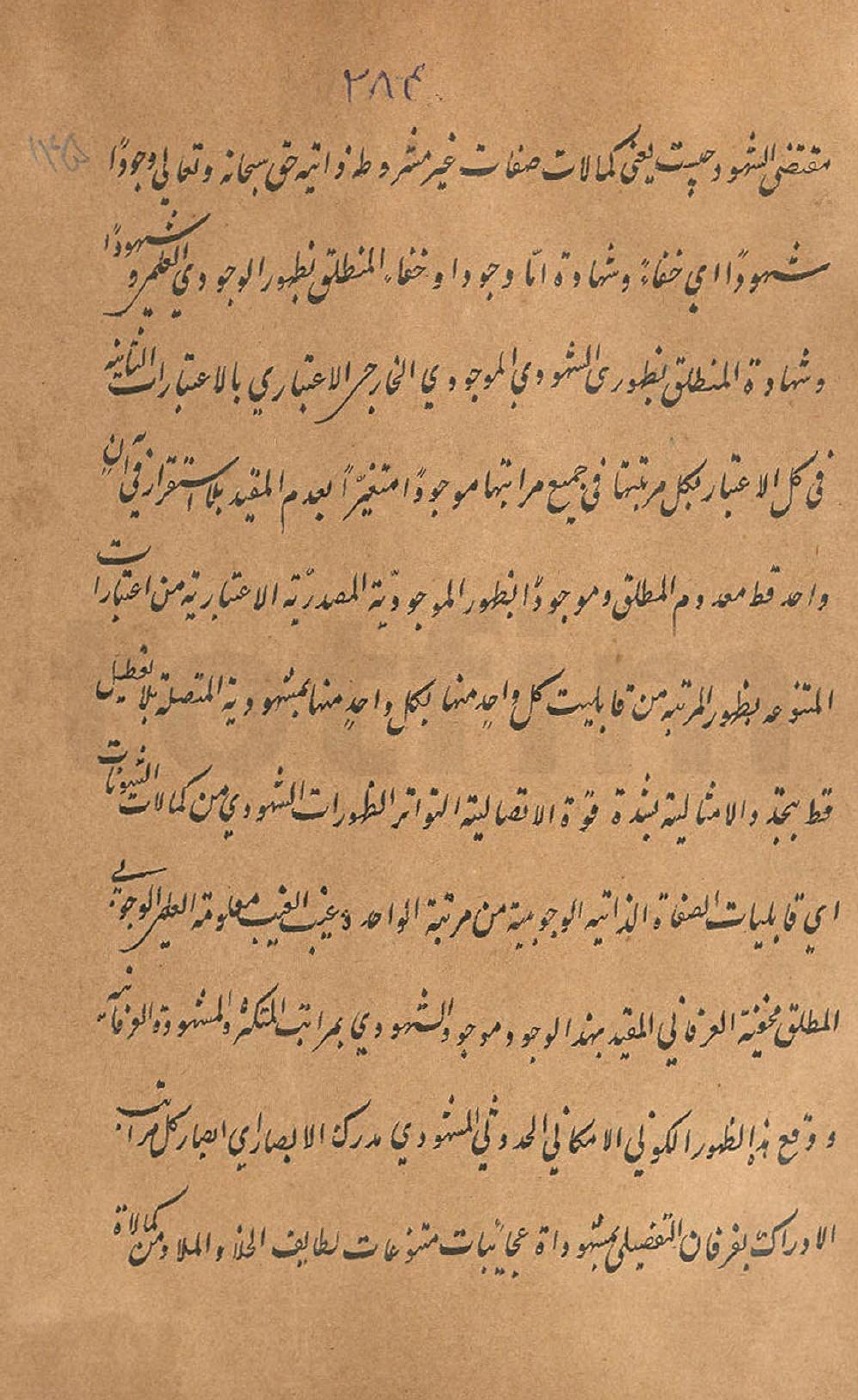 ٣٨٤
مقتضی الشهود چیست یعنی کمالات صفات غیر مشروطه ذاتیه حق سبحانه وتعالی وجودًا
شهودًا ای خفاءً وشهادة امّا وجودا و خفاءِ المنطلق بظهور الوجودي العلمی و شهودًا
وشهادة المنطلق بظهوری الشهودي الموجودي الخارجی الاعتباري بالاعتبارات الثانیه
فی کل الاعتبار بکل مرتبتها فی جمیع مراتبها موجودًا متغیّرًا بعدم المقید بلا استقرار فی آنٍ
واحد قط معدوم المطلق وموجودًا بظهور الموجودیّة المصدریّة الاعتباریة من اعتبارات
المتنوعه بظهور المرتبه من قابلیت کل واحدٍ منها بکل واحدٍ منها بمشهودیة المتصلة بلا تعطیل
قط بتجدد الامثالیة بشدة قوّة الاتصالیة التواتر الظهورات الشهودي من کمالات الشیونات
اي قابلیات الصفاة الذاتیه الوجوبیة من مرتبة الواحد وغیب الغیب معلومة العلمی الوجوبی
المطلق مخفیة العرفانی المقید بهذا الوجود موجود الشهودي بمراتب المتکثره والمشهودة العرفانیه
ووقع هذا الظهور الکونی الامکانی الحدوثی المشهودي مدرک الابصار اي ابصار کل مراتب
الادراک بفرقان التفصیلی بمشهوداة عجائیبات متنوعات لطایف الخلاء والملاء ومن کمالاة